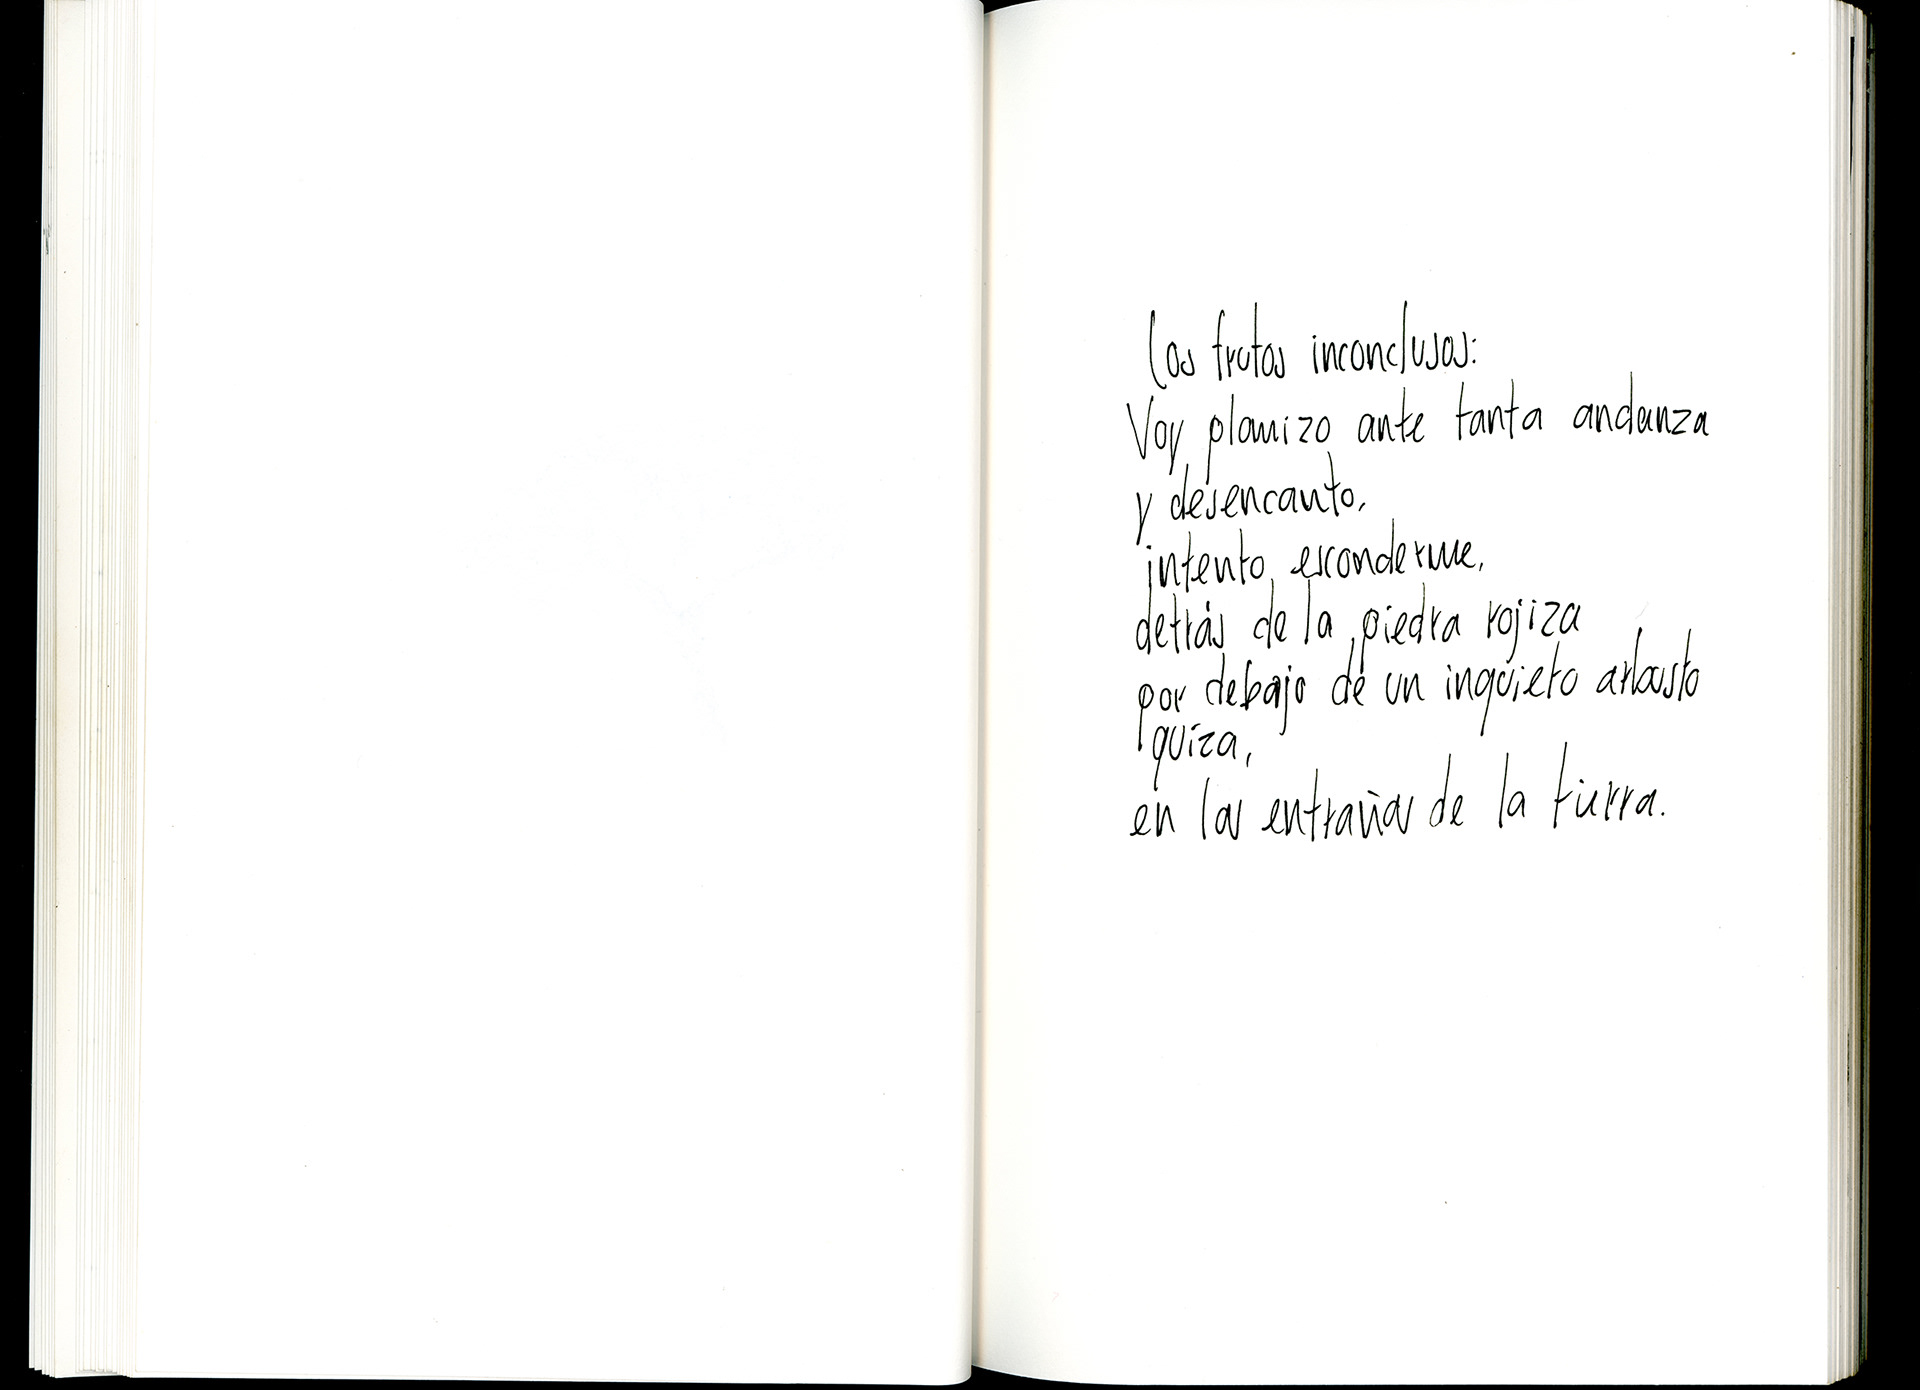 Los frutos inconclusos:
Voy plomizo ante tanta andanza
y desencanto,
intento esconderme,
detrás de la piedra rojiza
por debajo de un inquieto arbusto
quiza,
en las entrañas de la tierra.